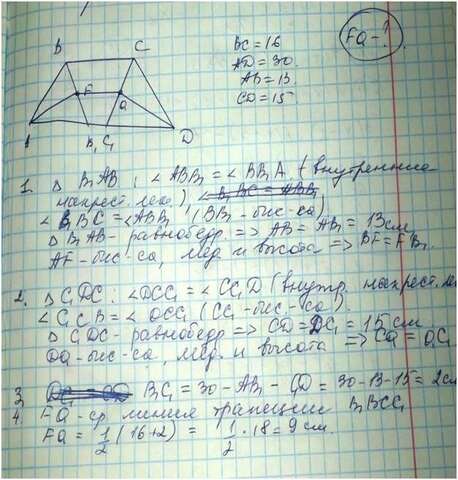 BC = 16
AD = 30.
AB = 13.
CD = 15.
FQ - ?
B
C
F
Q
A
B₁
C₁
D
1. Δ B₁AB : ∠ABB₁ = ∠BB₁A (внутренние
накрест. леж.), ∠B₁BC = ABB₁
∠B₁BC = ∠ABB₁ (BB₁ - бис-са)
Δ B₁AB - равнобедр. => AB = AB₁ = 13см
AF - бис-са, мед. и высота => BF = FB₁.
2. Δ C₁DC : ∠DCC₁ = ∠CC₁D (внутр. накрест. ле
∠C₁CB = ∠DCC₁ (CC₁ - бис-са).
Δ C₁DC - равнобедр => CD = DC₁ = 15см
DQ - бис-са, мед. и высота => CQ = QC₁
3. B₁C₁ = 30 - AB₁ - CD = 30-13-15 = 2см
4. FQ - ср. линия трапеции B₁BCC₁
FQ = 1/2 (16+2) = 1/2 · 18 = 9 см.